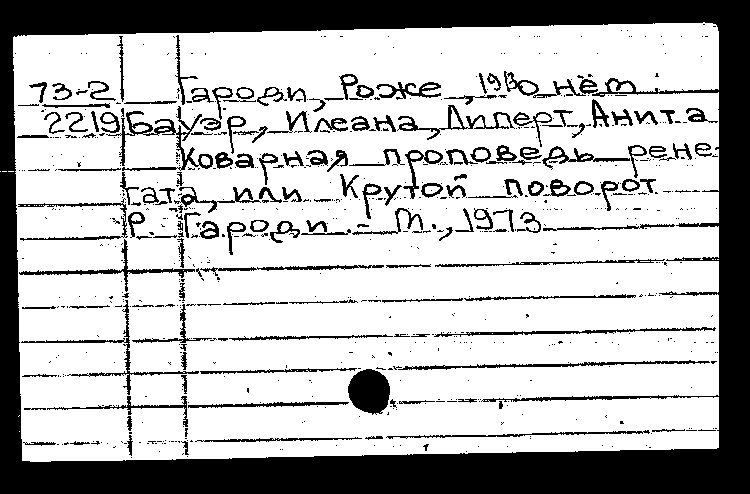 73-2 Гароди, Роже, 1913 О нём:
2219 Бауэр, Илеана, Липерт, Анита
Коварная проповедь рене-
гата, или Крутой поворот
Р. Гароди. - М., 1973